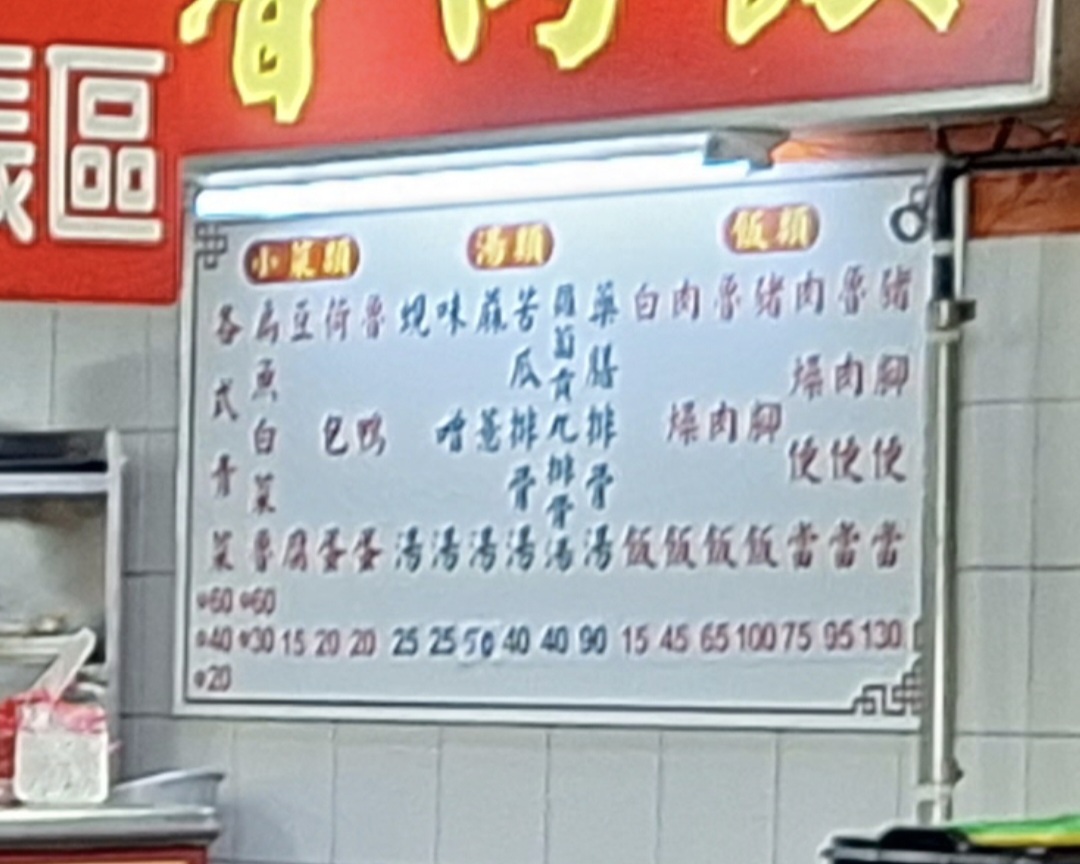 區
飯類
豬腳便當 130
魯肉便當 95
肉燥便當 75
豬腳飯 100
魯肉飯 65
肉燥飯 45
白飯 15
湯類
藥膳排骨湯 90
蘿蔔貢丸排骨湯 40
苦瓜排骨湯 40
蔴薏湯 50
味噌湯 25
蜆湯 25
小菜類
魯鴨蛋 20
荷包蛋 20
豆腐 15
扁魚白菜魯 60 30
各式青菜 60 40 20